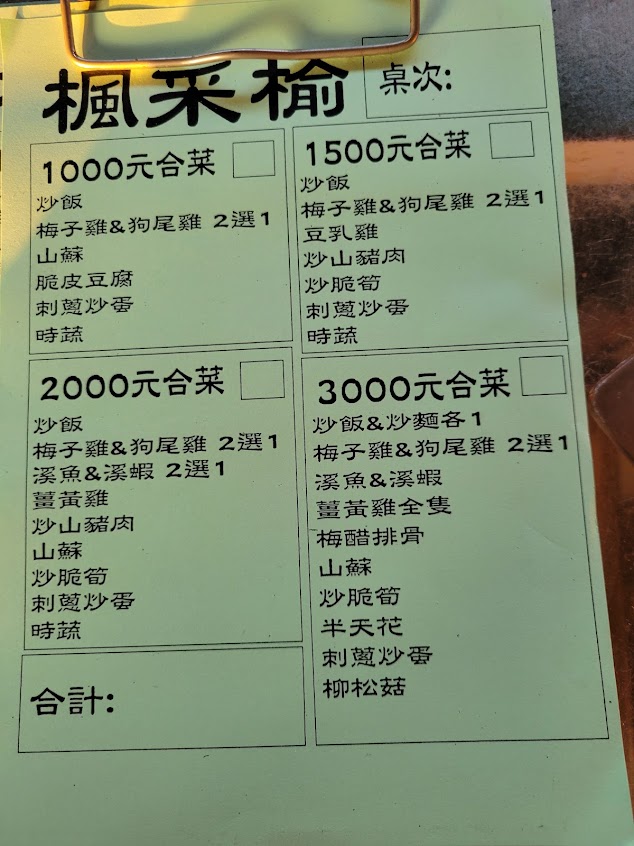 楓采榆
桌次:
1000元合菜
炒飯
梅子雞&狗尾雞 2選1
山蘇
脆皮豆腐
刺蔥炒蛋
時蔬
1500元合菜
炒飯
梅子雞&狗尾雞 2選1
豆乳雞
炒山豬肉
炒脆筍
刺蔥炒蛋
時蔬
2000元合菜
炒飯
梅子雞&狗尾雞 2選1
溪魚&溪蝦 2選1
薑黃雞
炒山豬肉
山蘇
炒脆筍
刺蔥炒蛋
時蔬
3000元合菜
炒飯&炒麵各1
梅子雞&狗尾雞 2選1
溪魚&溪蝦
薑黃雞全隻
梅醋排骨
山蘇
炒脆筍
半天花
刺蔥炒蛋
柳松菇
合計: